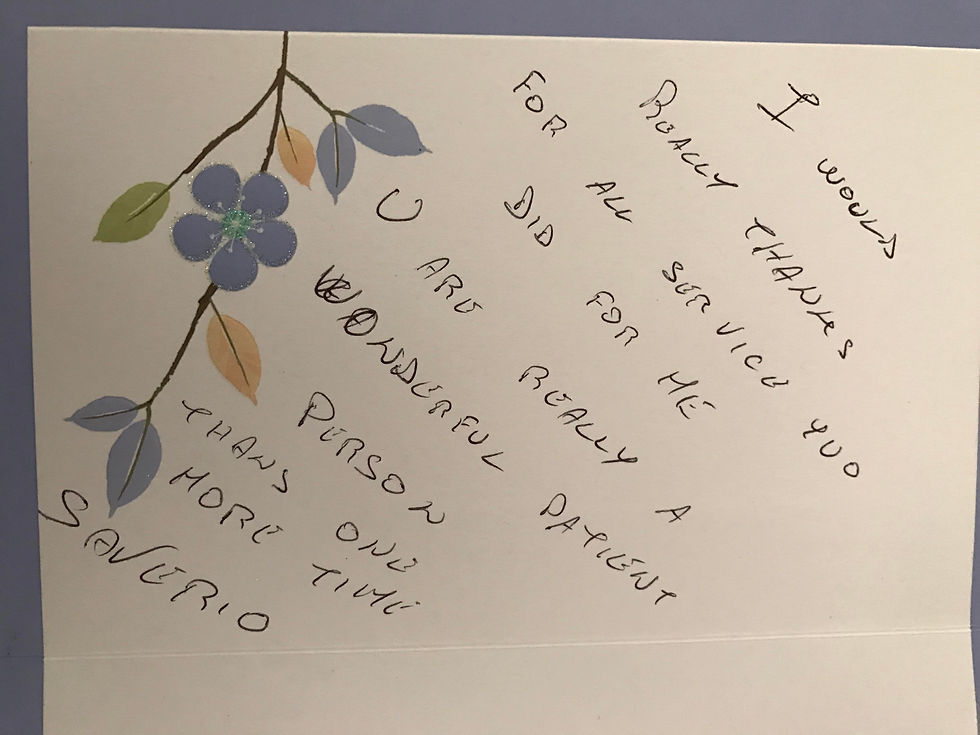 I WOULD
REALLY THANKS
FOR ALL SERVICE YUO
DID FOR ME
U ARE REALLY A
WONDERFUL PATIENT
PERSON
THANS ONE
MORE TIME
SAVERIO